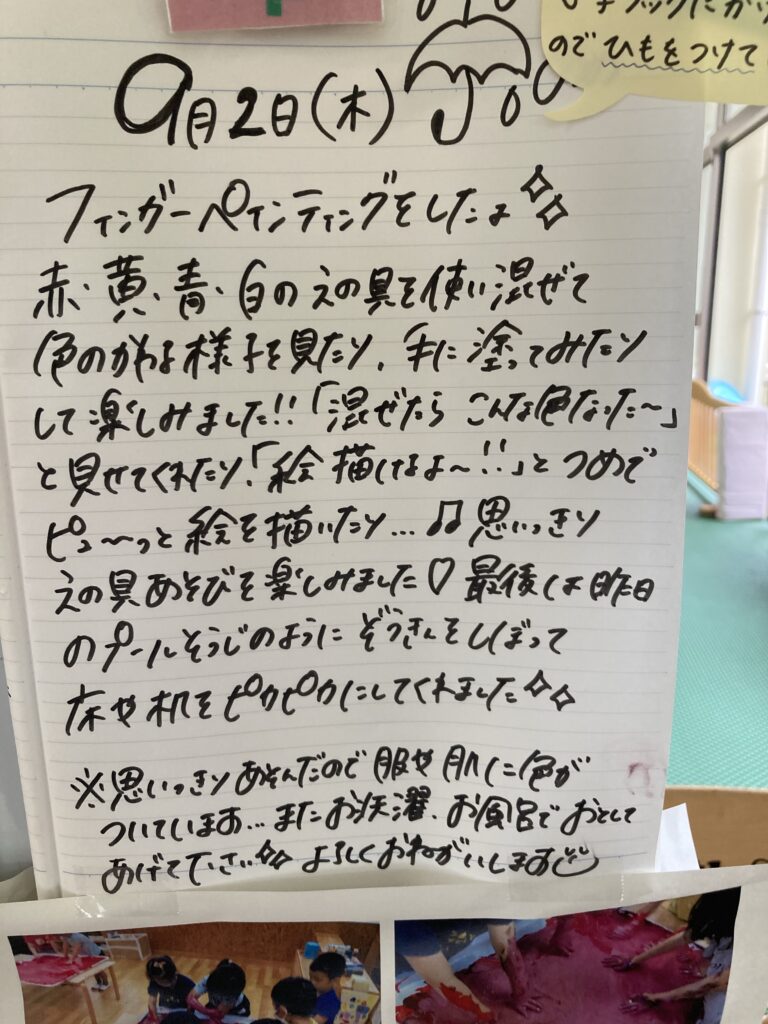 のでひもをつけて
9月2日(木)
フィンガーペインティングをしたよ
赤・黄・青・白のえの具を使い混ぜて
色のかわる様子を見たり、手に塗ってみたり
して楽しみました!!「混ぜたら こんな色なった〜」
と見せてくれたり、「絵 描けるよ〜!!」とつめで
ピュ〜っと絵を描いたり…♫思いっきり
えの具あそびを楽しみました♡最後は昨日
のプールそうじのように ぞうきんをしぼって
床や机をピカピカにしてくれました
※思いっきりあそんだので服や肌に色が
ついています…またお洗濯、お風呂でおとして
あげて下さい よろしくおねがいします